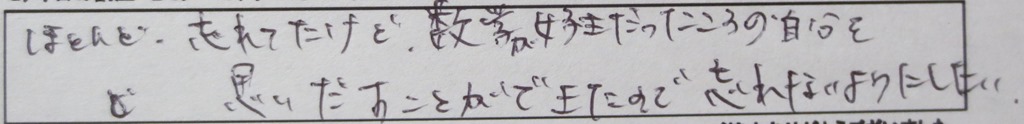 ほとんど、忘れてたけど、数学が好きだったころの自分を
ど 思いだすことができたので忘れないようにしたい。